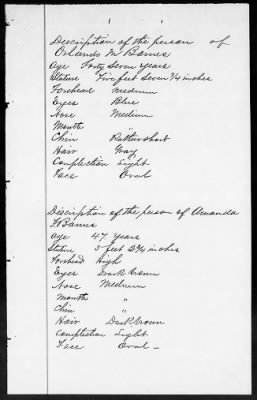 Description of the person of
Orlando M Barnes
age Forty Seven years
Stature Five feet Seven 3/4 inches
Forehead Medium
Eyes Blue
Nose Medium
Mouth "
Chin Rather short
Hair Gray
Complection Light
Face Oval
Discription of the person of Amanda
Barnes
age 47 years
Stature 5 feet 2 3/4 inches
Forhead High
Eyes Dark brown
Nose Medium
Mouth "
Chin "
Hair Dark brown
Complection Light
Face Oval -